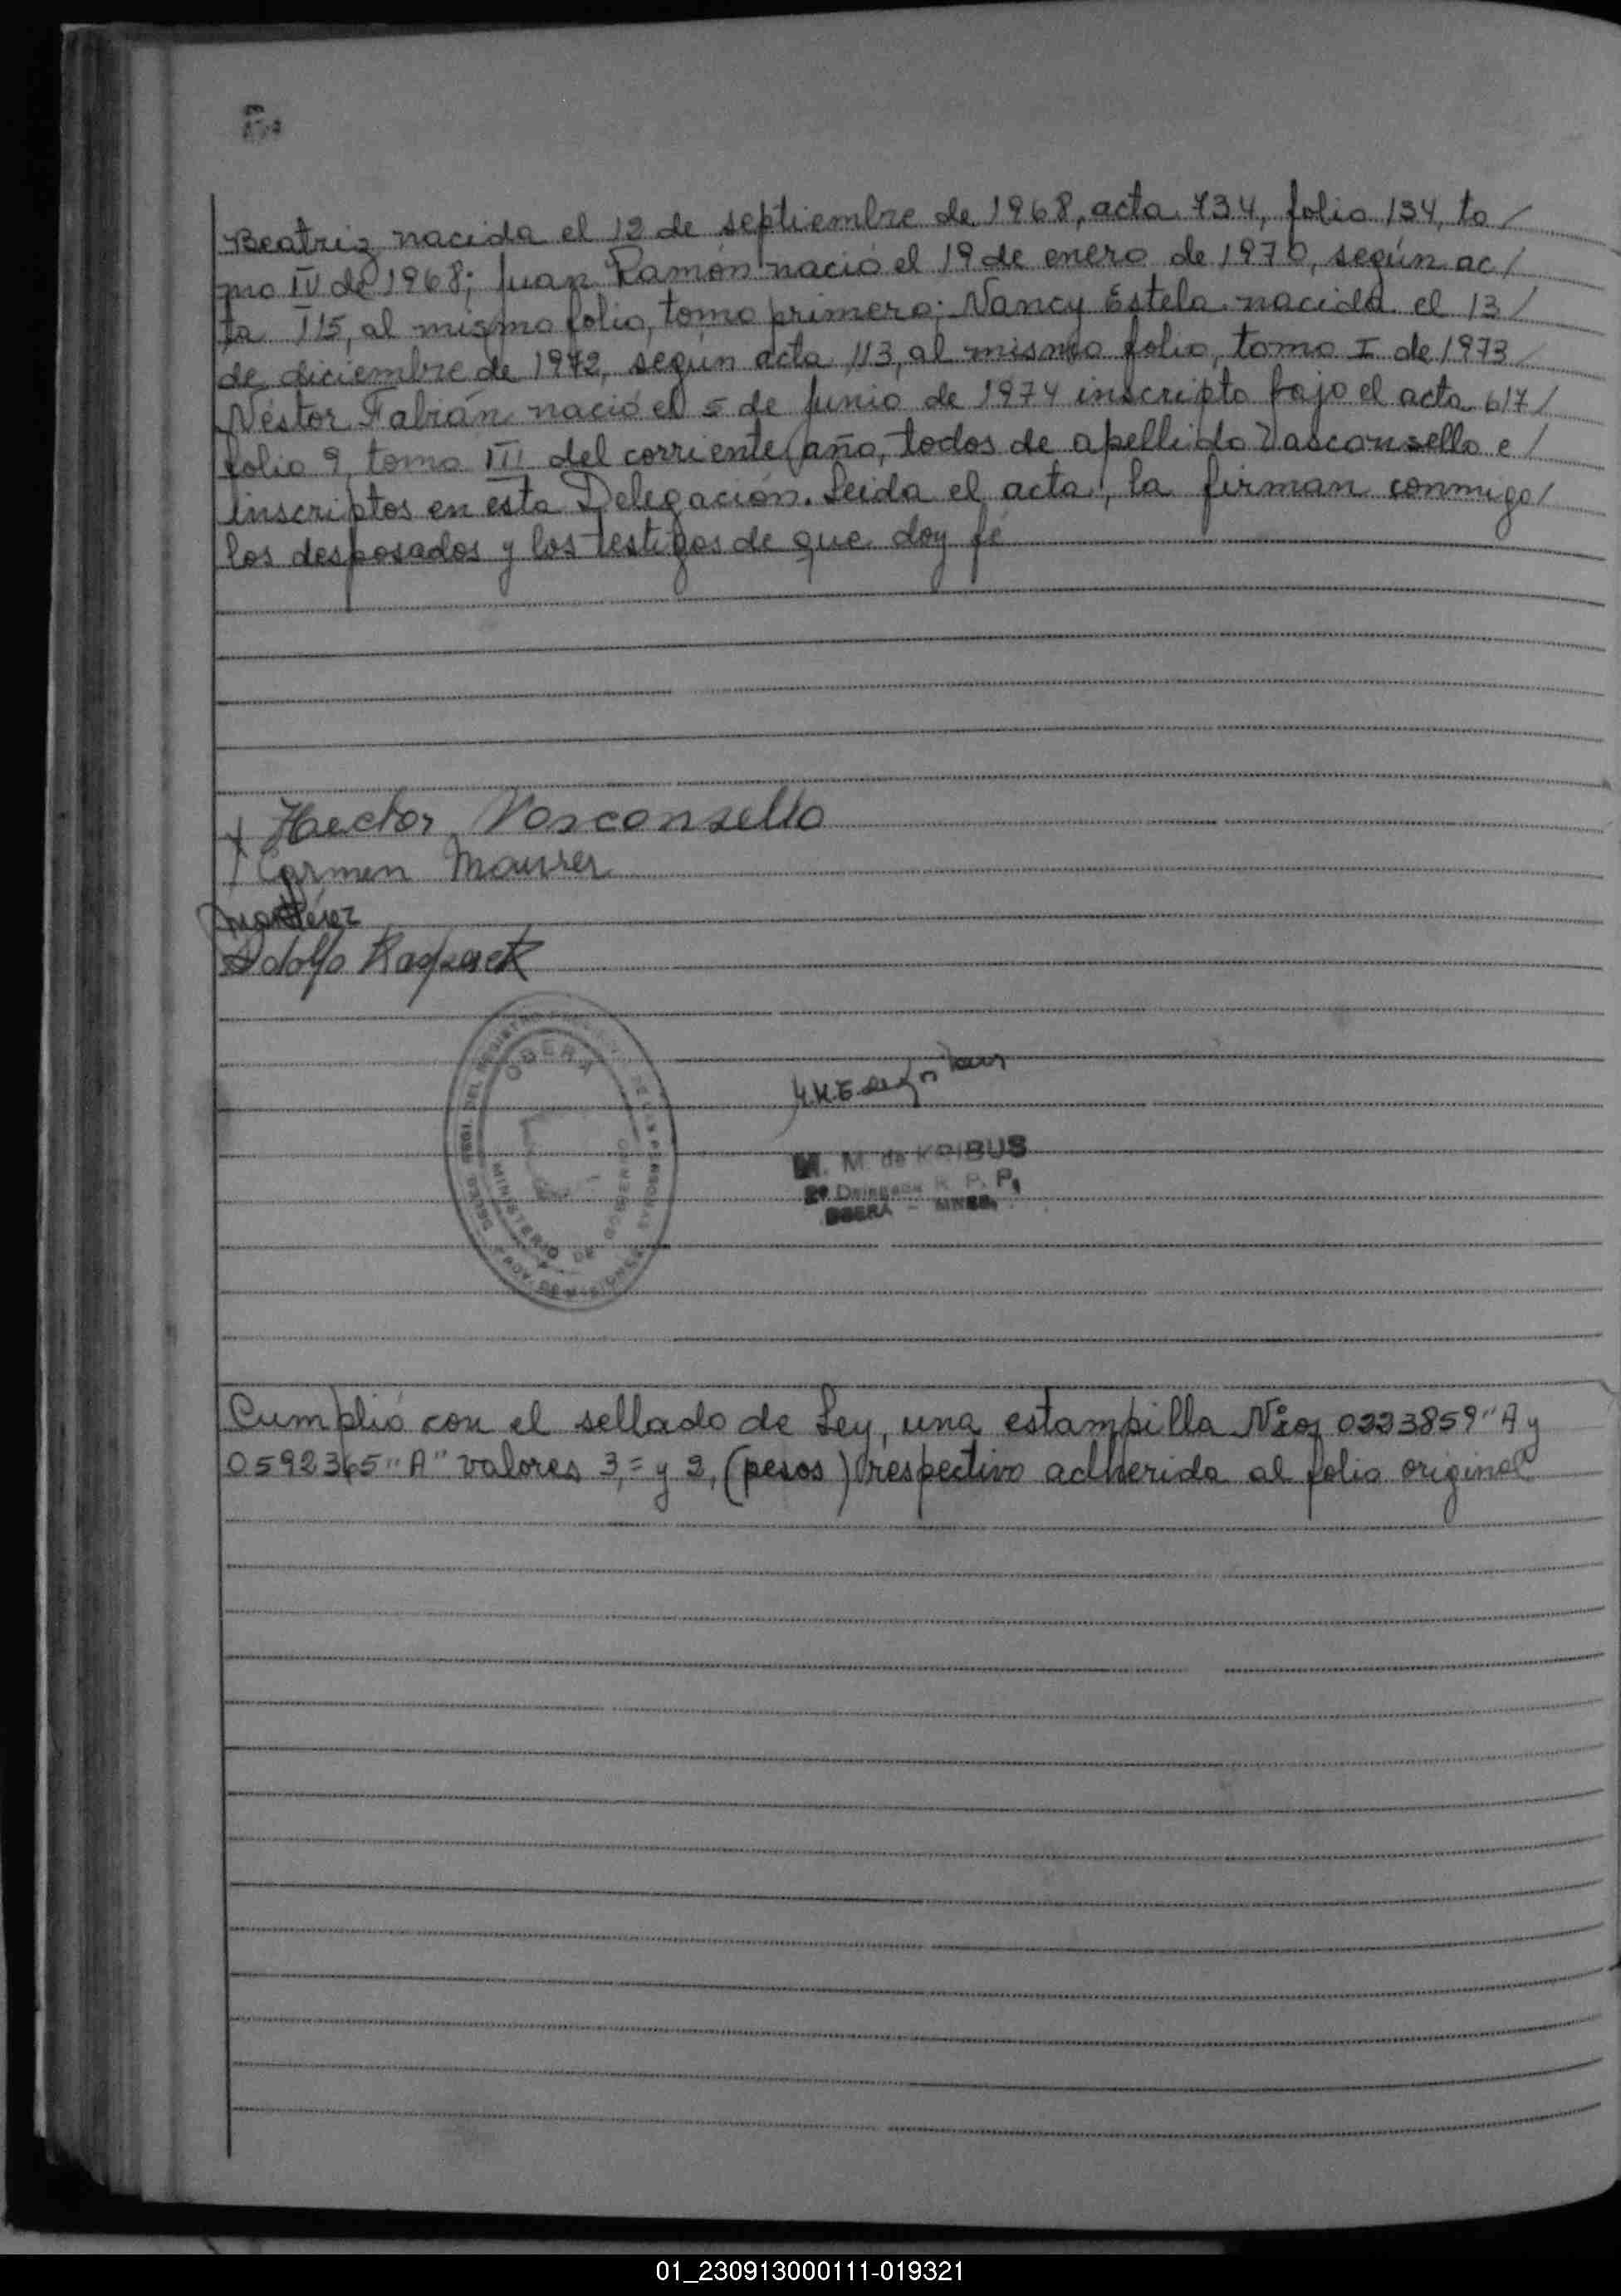 Beatriz nacida el 12 de septiembre de 1968, acta 734, folio 134, to/
mo IV de 1968; Juan Ramón nació el 19 de enero de 1970, según ac/
ta 115, al mismo folio, tomo primero; Nancy Estela nacida el 13/
de diciembre de 1972, según acta 113, al mismo folio, tomo I de 1973
Néstor Fabián nació el 5 de Junio de 1974 inscripto bajo el acta 617/
folio 9, tomo III del corriente año, todos de apellido Vasconsello e/
inscriptos en esta Delegación. Leida el acta, la firman conmigo/
los desposados y los testigos de que doy fé
Hector Vasconsello
Carmen Maurer
Adolfo
OBERA
MINISTERIO DE GOBIERNO
PROV. DE MISIONES
M. M. de KRIBUS
R. P. P.
OBERA - MNES.
Cumplió con el sellado de Ley, una estampilla Nros 0223859 "A y
0592365 "A" valores 3,= y 2, (pesos) respectivo adherida al folio original
01_230913000111-019321